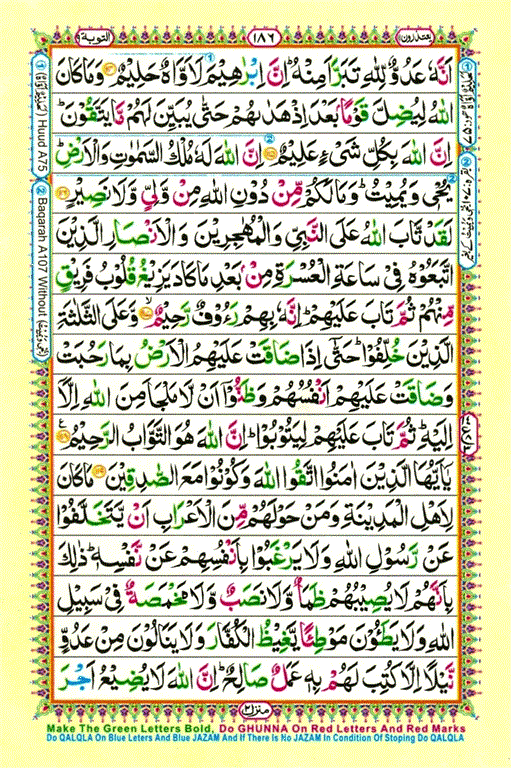 يعتذرون ١٨٦ التوبة
اَنَّهٗ عَدُوٌّ لِّلّٰهِ تَبَرَّاَ مِنْهُ ؕ اِنَّ اِبْرٰهِيْمَ لَاَوَّاهٌ حَلِيْمٌ ﴿۱۱۴﴾ وَمَا كَانَ
اللّٰهُ لِيُضِلَّ قَوْمًۢا بَعْدَ اِذْ هَدٰٮهُمْ حَتّٰى يُبَيِّنَ لَهُمْ مَّا يَتَّقُوْنَ ؕ
اِنَّ اللّٰهَ بِكُلِّ شَىْءٍ عَلِيْمٌ ﴿۱۱۵﴾ اِنَّ اللّٰهَ لَهٗ مُلْكُ السَّمٰوٰتِ وَالْاَرْضِ ؕ
يُحْىٖ وَيُمِيْتُ ؕ وَمَا لَكُمْ مِّنْ دُوْنِ اللّٰهِ مِنْ وَّلِىٍّ وَّلَا نَصِيْرٍ ﴿۱۱۶﴾
لَقَدْ تَّابَ اللّٰهُ عَلَى النَّبِىِّ وَالْمُهٰجِرِيْنَ وَالْاَنْصَارِ الَّذِيْنَ
اتَّبَعُوْهُ فِىْ سَاعَةِ الْعُسْرَةِ مِنْۢ بَعْدِ مَا كَادَ يَزِيْغُ قُلُوْبُ فَرِيْقٍ
مِّنْهُمْ ثُمَّ تَابَ عَلَيْهِمْ ؕ اِنَّهٗ بِهِمْ رَءُوْفٌ رَّحِيْمٌ ۙ﴿۱۱۷﴾ وَّعَلَى الثَّلٰثَةِ
الَّذِيْنَ خُلِّفُوْا ؕ حَتّٰۤى اِذَا ضَاقَتْ عَلَيْهِمُ الْاَرْضُ بِمَا رَحُبَتْ
وَضَاقَتْ عَلَيْهِمْ اَنْفُسُهُمْ وَظَنُّوْۤا اَنْ لَّا مَلْجَاَ مِنَ اللّٰهِ اِلَّاۤ
اِلَيْهِ ؕ ثُمَّ تَابَ عَلَيْهِمْ لِيَتُوْبُوْا ؕ اِنَّ اللّٰهَ هُوَ التَّوَّابُ الرَّحِيْمُ ﴿۱۱۸﴾
يٰۤاَيُّهَا الَّذِيْنَ اٰمَنُوا اتَّقُوا اللّٰهَ وَكُوْنُوْا مَعَ الصّٰدِقِيْنَ ﴿۱۱۹﴾ مَا كَانَ
لِاَهْلِ الْمَدِيْنَةِ وَمَنْ حَوْلَهُمْ مِّنَ الْاَعْرَابِ اَنْ يَّتَخَلَّفُوْا
عَنْ رَّسُوْلِ اللّٰهِ وَلَا يَرْغَبُوْا بِاَنْفُسِهِمْ عَنْ نَّفْسِهٖ ؕ ذٰلِكَ
بِاَنَّهُمْ لَا يُصِيْبُهُمْ ظَمَاٌ وَّلَا نَصَبٌ وَّلَا مَخْمَصَةٌ فِىْ سَبِيْلِ
اللّٰهِ وَلَا يَطَـُٔوْنَ مَوْطِئًا يَّغِيْظُ الْكُفَّارَ وَلَا يَنَالُوْنَ مِنْ عَدُوٍّ
نَّيْلًا اِلَّا كُتِبَ لَهُمْ بِهٖ عَمَلٌ صَالِحٌ ؕ اِنَّ اللّٰهَ لَا يُضِيْعُ اَجْرَ
منزل ٢
Huud A75
Baqarah A107 Without
Make The Green Letters Bold, Do GHUNNA On Red Letters And Red Marks
Do QALQLA On Blue Leters And Blue JAZAM And If There Is No JAZAM In Condition Of Stoping Do QALQLA